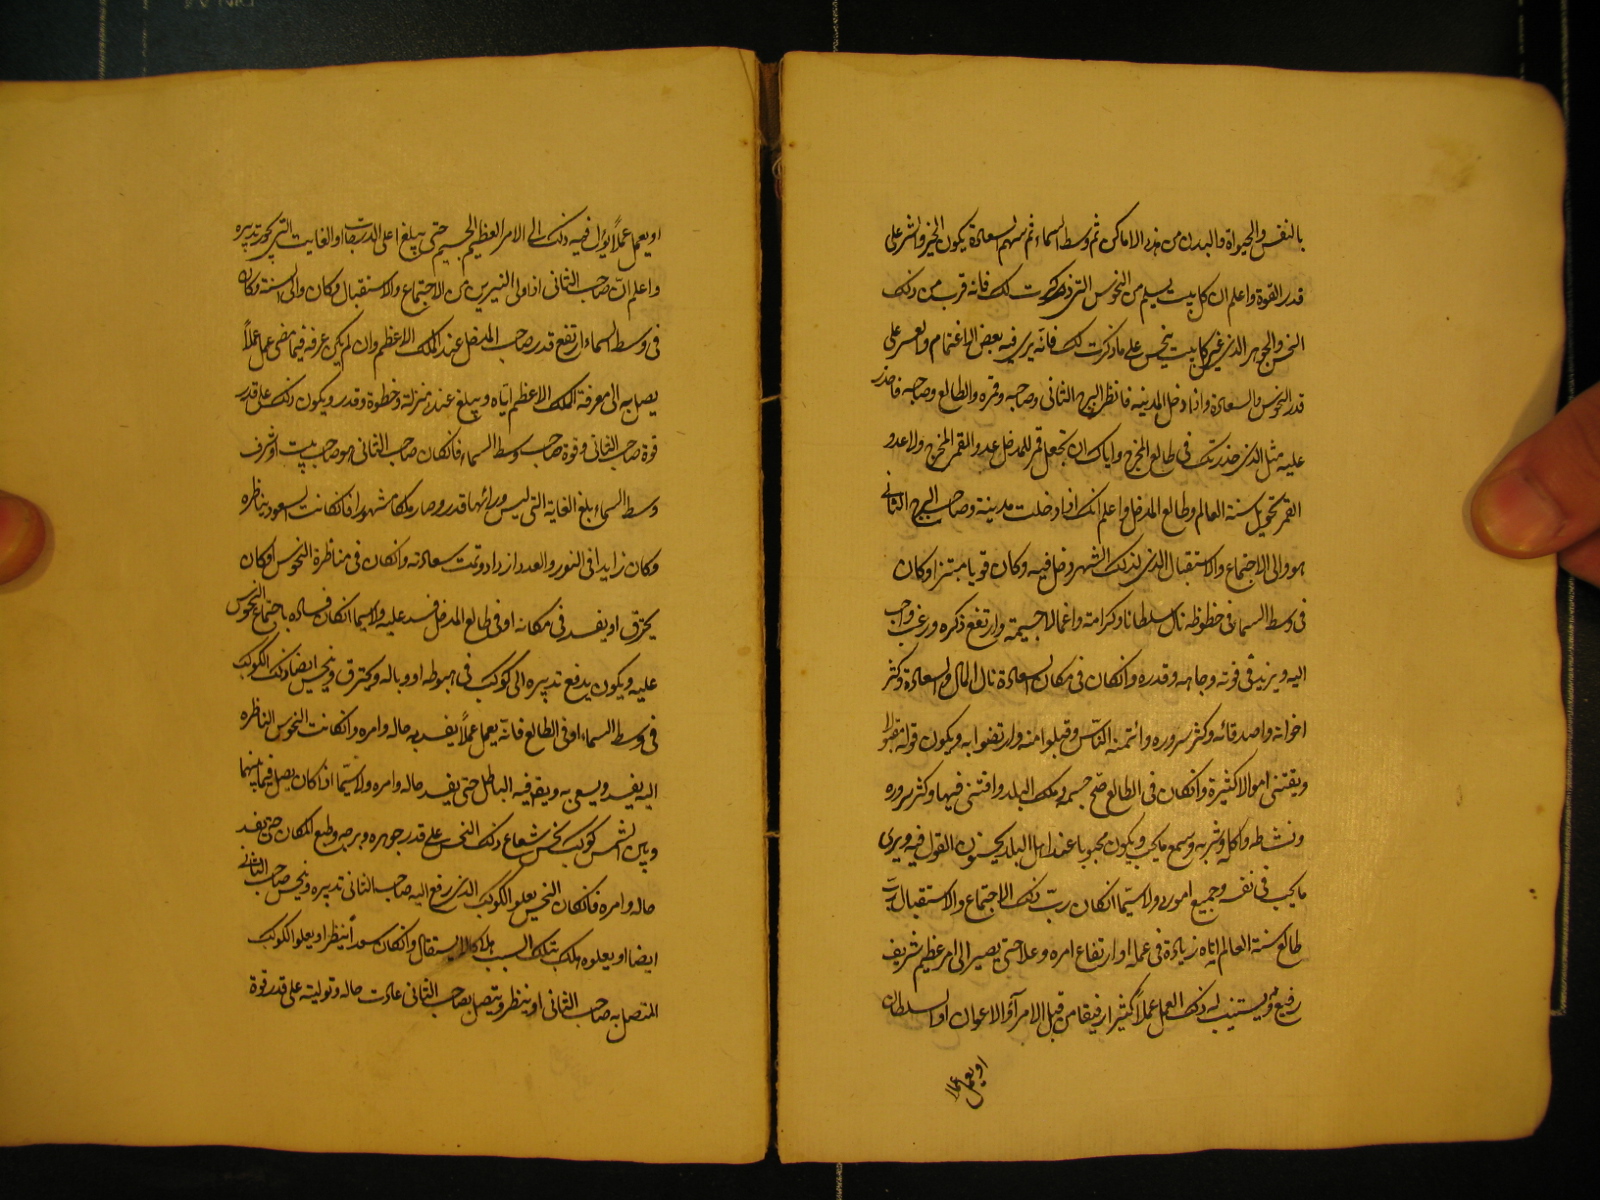 بالنفس والحيواة والبدن من هذه الاماكن ثم وسط السماء ثم سهم السعادة يكون الخير والشر على
قدر القوة واعلم ان كل بيت يسلم من النحوس التى ذكرت لك فانه قرب من ذلك
النحس والجوهر الذى غير كل بيت ينحس على ما ذكرت لك فانه يرى فيه بعض الاغتمام والعسر على
قدر النحوس والسعادة واذا دخل المدينه فانظر البرج الثانى وصاحبه وقمره والطالع وصاحبه فاحذر
عليه مثل الذى حذرتك فى طالع المخرج واياك ان تجعل قمر المدخل عدو القمر المخرج ولا عدو
القمر تحويل سنة العالم وطالع المدخل واعلم انك اذا دخلت مدينة وصاحب البرج الثانى
هو والى الاجتماع والاستقبال الذى لذلك الشهر دخل فيه وكان قويا مبتزا وكان
فى وسط السماء فى حظوظه نال سلطانا وكرامة واعمالا جسيمة وارتفع ذكره ورغب واجب
اليه ويزيد فى قوته وجاهه وقدره وانكان فى مكان السعادة نال المال والسعادة وكثر
اخوانه واصدقائه وكثر سروره وائتمنه الناس وقبلوا منه وارتضوا به ويكون قوله مقبولا
ويقتنى اموالا كثيرة وانكان فى الطالع صح جسمه وملك البلد واقتنى فيها وكثر سروره
ونشاطه واكله وشربه وسمع ما يحب ويكون محبوبا عند اهل البلد يحسنون القول فيه ويرى
ما يحب فى نفسه وجميع اموره ولا سيما انكان رب ذلك الاجتماع والاستقبال رب
طالع سنة العالم اتاه زيادة فى عمله او ارتفاع امره وعلا حتى يصير الى امر عظيم شريف
رفيع ويستنيب له ذلك العمل عملا كثيرا رفيقا من قبل الامرآء والاعوان او السلطان
او يعمل عملا
او يعمل عملاً يؤل فيه ذلك الى الامر العظيم الجسيم حتى يبلغ اعلى الدرجات او الغايت التى يجوز تدبيره
واعلم ان صاحب الثانى اذا ولى النيرين من الاجتماع والاستقبال وكان والى السنة وكان
فى وسط السماء ارتفع قدر صاحب المدخل عند الملك الاعظم وان لم يكن عرفه فيما مضى عمل عملاً
يصل به الى معرفة الملك الاعظم اياه ويبلغ عنده منزلة وخطوة وقدر ويكون ذلك على قدر
قوة صاحب الثانى وقوة صاحب وسط السماء فانكان صاحب الثانى هو صاحب بيت او شرف
وسط السماء بلغ الغاية التى ليس ورائها قدر وصار ملكا مشهورا فانكانت السعود يناظره
وكان زايدا فى النور والعدد ازداد وتمت سعادته وانكان فى مناظرة النحوس او كان
يحترق او يفسد فى مكانه او فى طالع المدخل فسد عليه ولا سيما انكان فساده باجتماع النحوس
عليه ويكون يدفع تدبيره الى كوكب فى هبوطه او وباله ويحترق وينحس ايضا ذلك الكوكب
فى وسط السماء او فى الطالع فانه يعمل عملاً يفسد به حاله وامره وانكانت النحوس الناظره
اليه يفسد ويسعى به ويقع فيه الباطل حتى يفسد حاله وامره ولا سيما اذا كان يصل فيما بينهما
وبين الشمس كوكب نحس شعاع ذلك النحس على قدر جوهره وبرجه وطبع المكان حتى يفسد
حاله وامره فانكان النحس يعلو الكوكب الذى رفع اليه صاحب الثانى تدبيره ونحس صاحب الثانى
ايضا او يعلوه هلك بتلك السبب هلاكا لا يستقال وانكان سعداً ينظر او يعلو الكوكب
المتصل به صاحب الثانى او ينظر ويتصل بصاحب الثانى عادت حاله وتوليته على قدر قوة